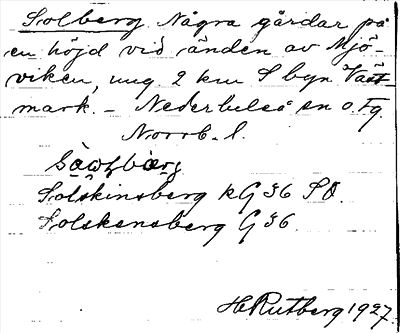 Solberg. Några gårdar på
en höjd vid änden av Mjö-
viken, ung 2 km S byn Väst-
mark. – Nederluleå sn o. Fg
Norrb. l.
Solskinsberg kG 36 SO.
Solskensberg G 36.
H Rutberg 1927.